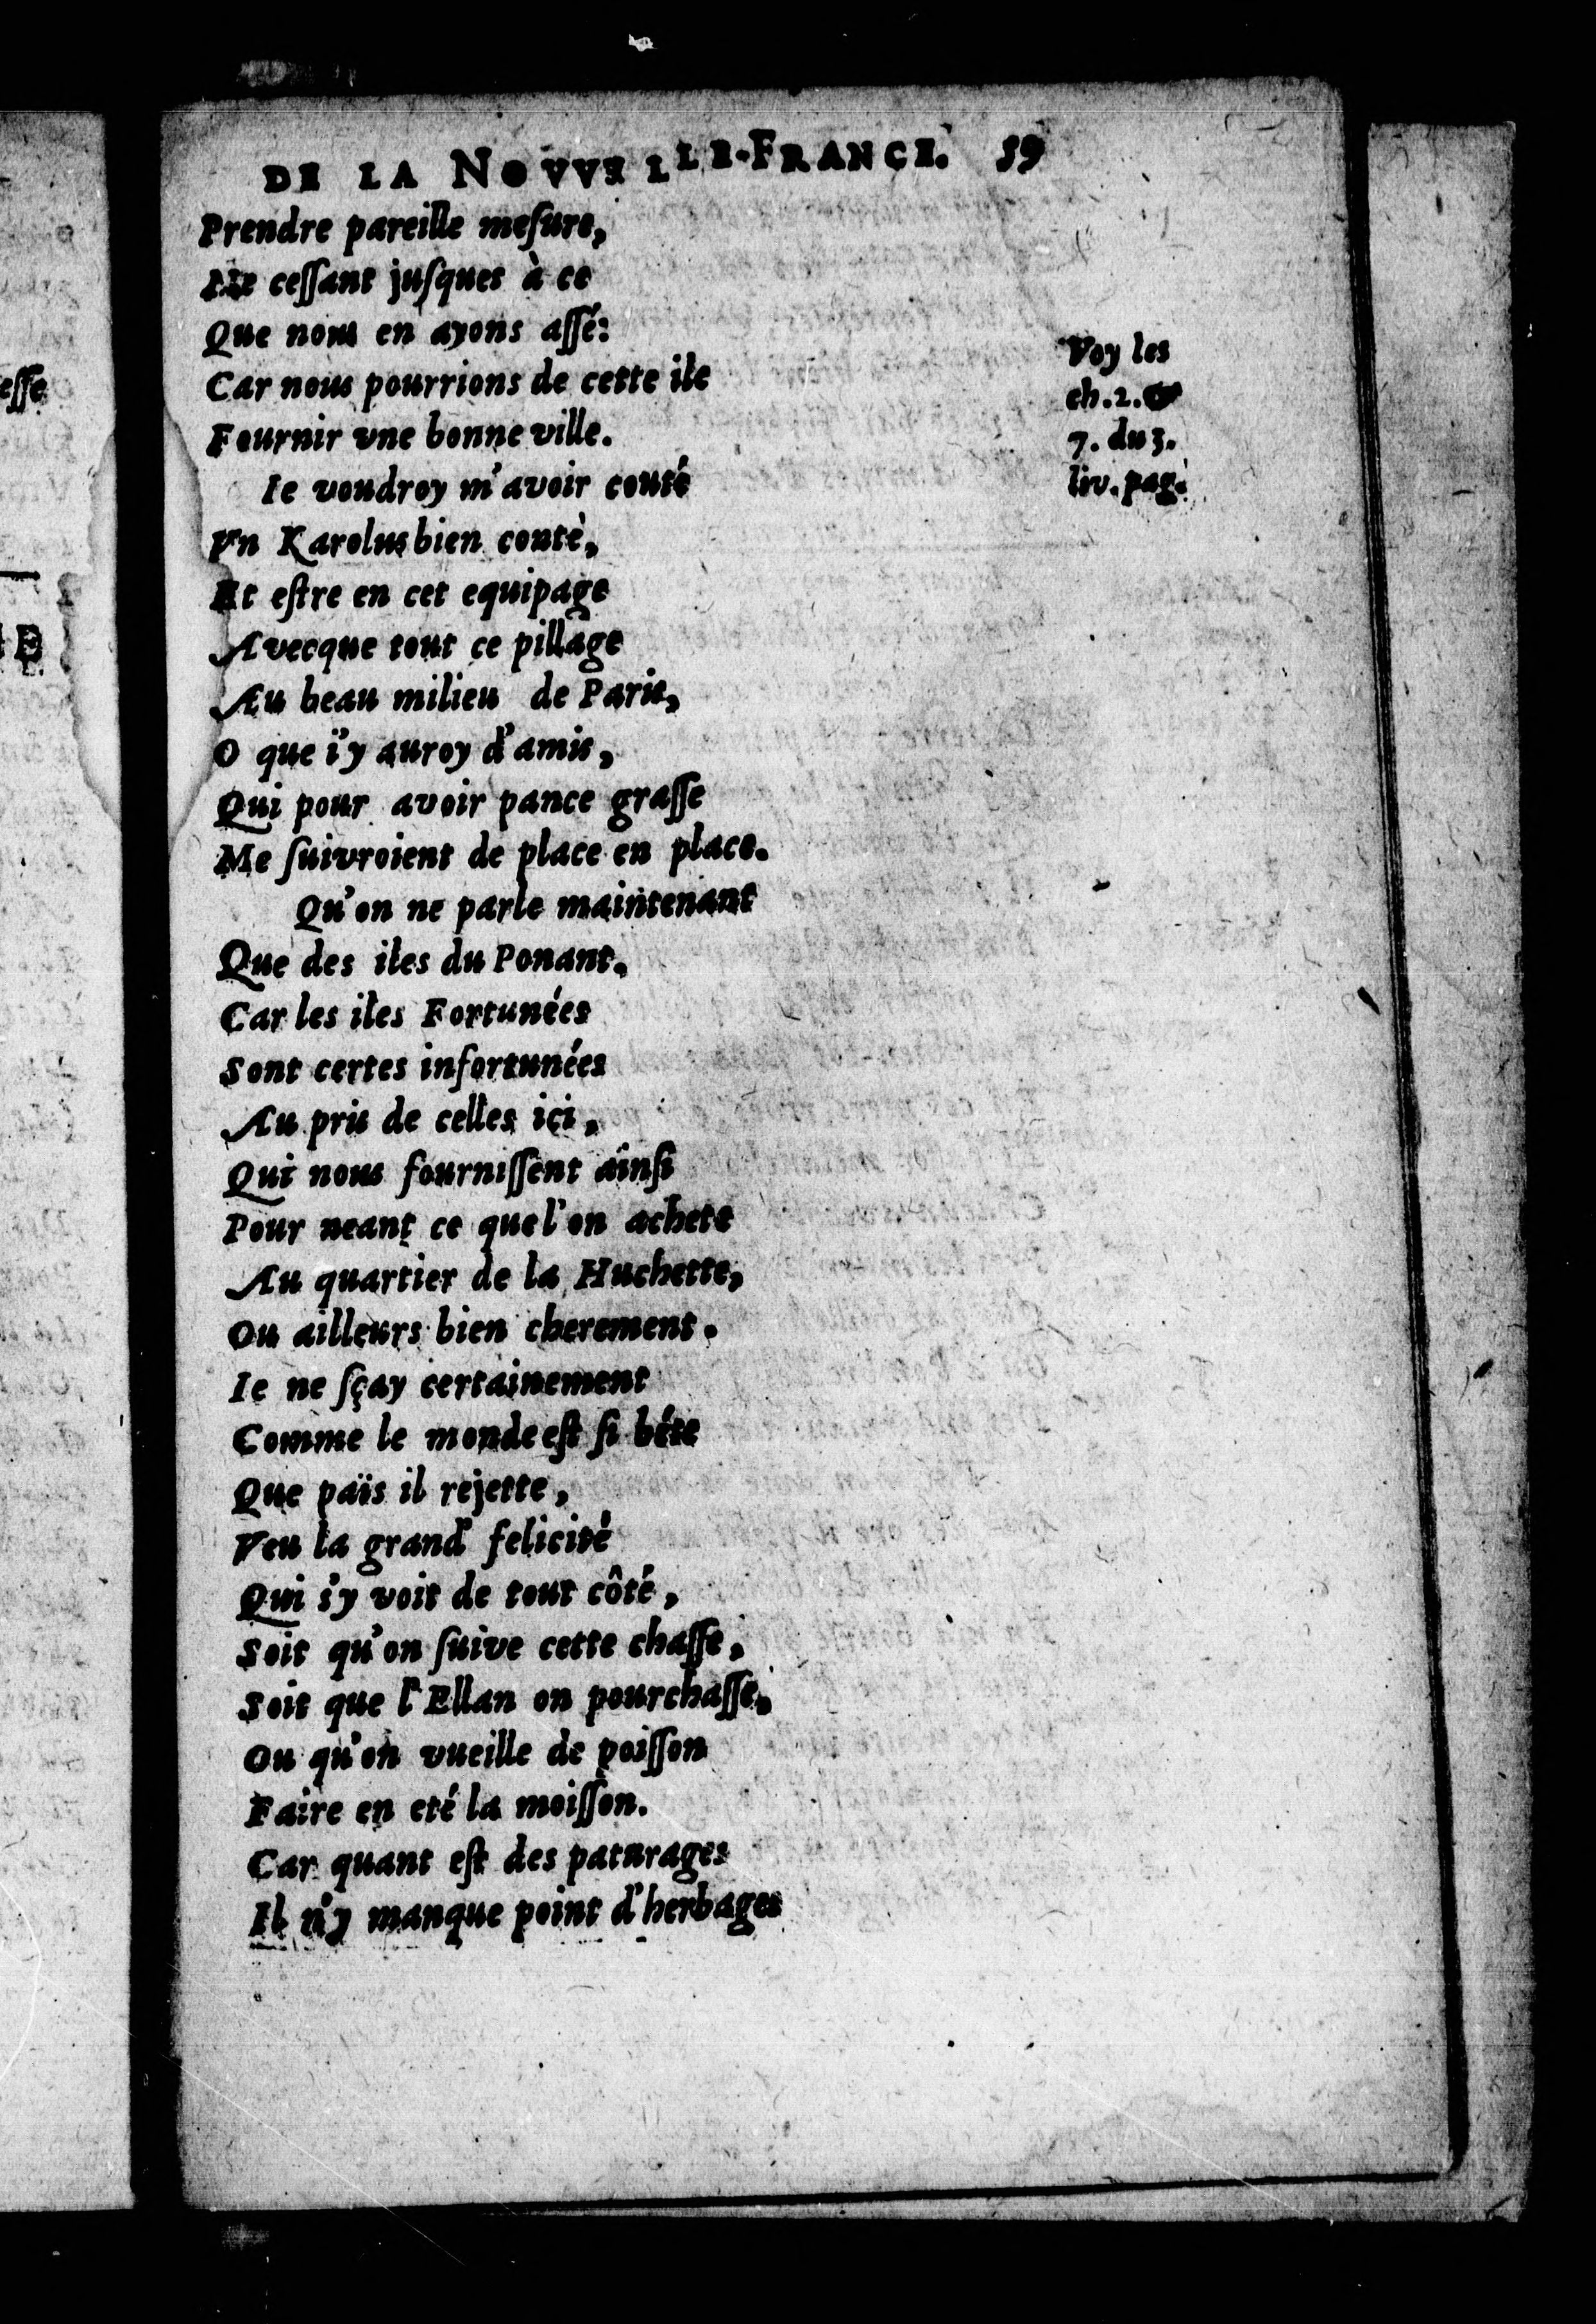 DE LA NOVVELLE-FRANCE. 59
Prendre pareille meſure,
Ne ceſſant juſques à ce
Que nous en ayons aſſé:
Car nous pourrions de cette ile
Fournir vne bonne ville.
Ie voudroy m'avoir couté
Vn Karolus bien conté,
Et eſtre en cet equipage
Avecque tout ce pillage
Au beau milieu de Paris,
O que i'y auroy d'amis,
Qui pour avoir pance graſſe
Me ſuivroient de place en place.
Qu'on ne parle maintenant
Que des iles du Ponant.
Car les iles Fortunées
Sont certes infortunées
Au pris de celles ici,
Qui nous fourniſſent ainſi
Pour neant ce que l'on achete
Au quartier de la Huchette,
Ou ailleurs bien cherement.
Ie ne ſçay certainement
Comme le monde eſt ſi béte
Que païs il rejette,
Veu la grand' felicité
Qui s'y voit de tout côté,
Soit qu'on ſuive cette chaſſe,
Soit que l'Ellan on pourchaſſe,
Ou qu'on vueille de poiſſon
Faire en eté la moiſſon.
Car quant eſt des paturages
Il n'y manque point d'herbages
Voy les
ch. 2. &
7. du 3.
liv. pag.
eſſe